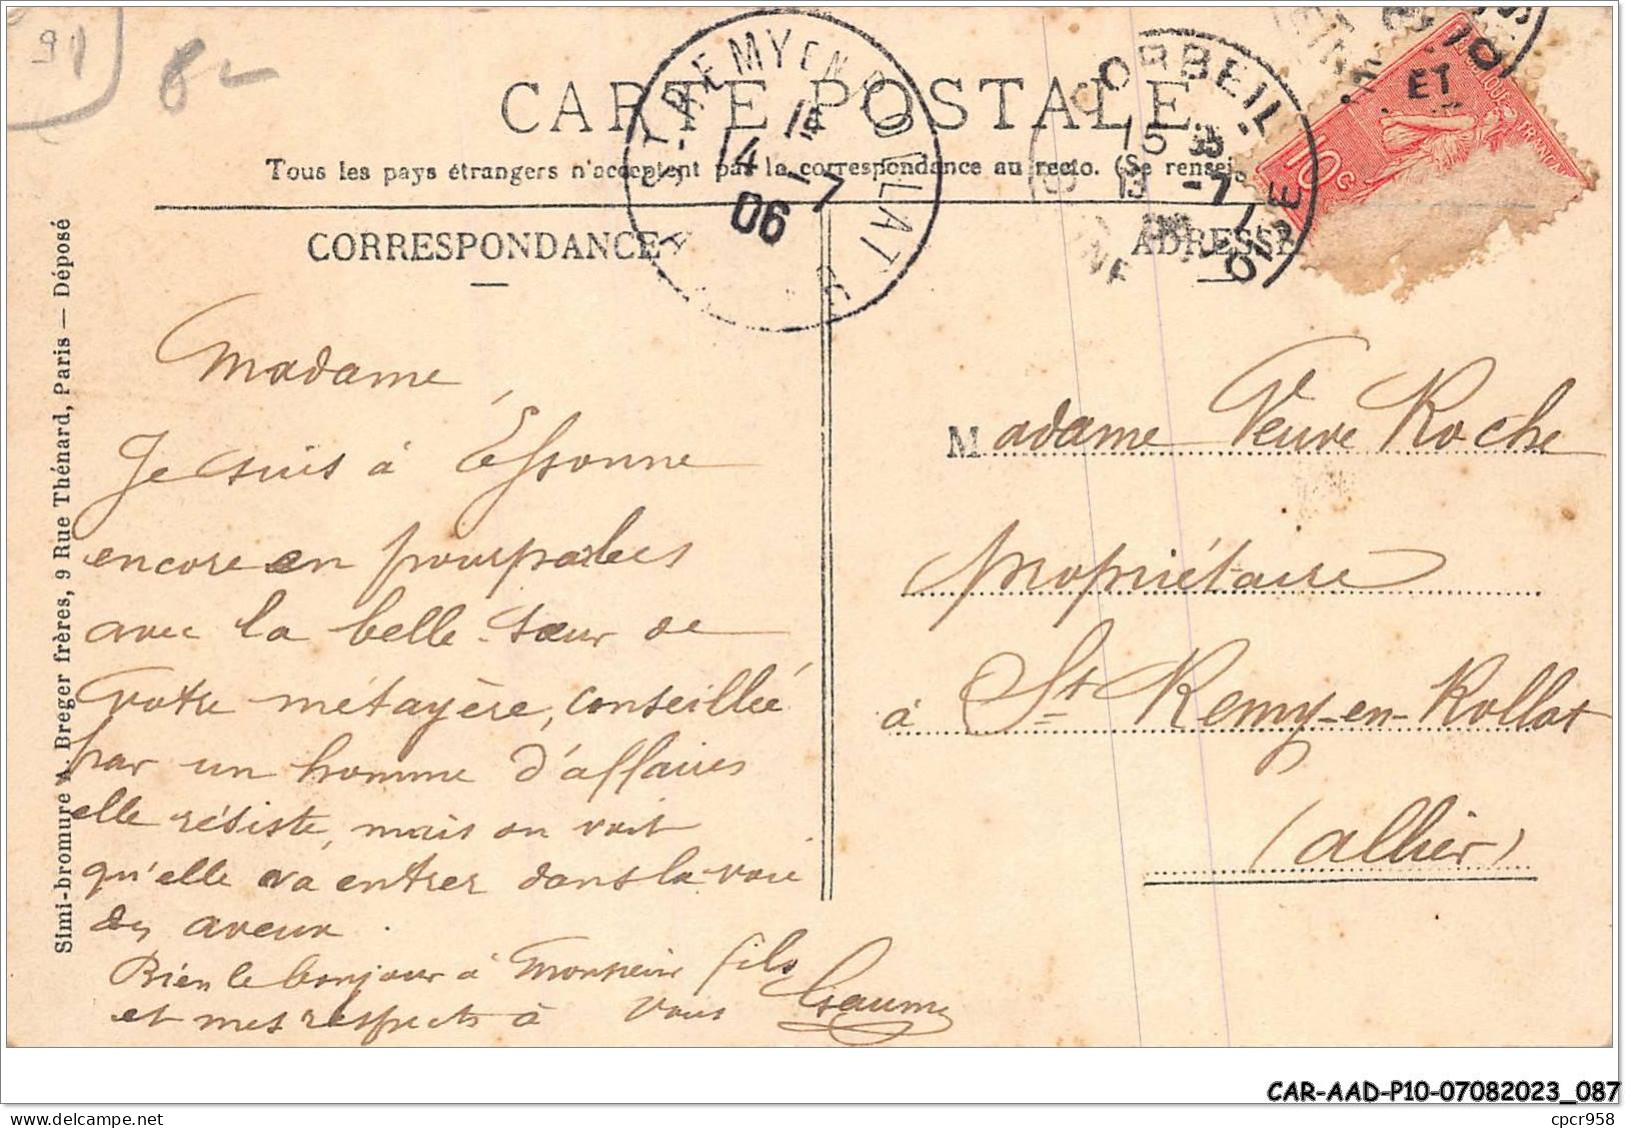 91
8-
CARTE POSTALE
Tous les pays étrangers n'acceptent pas la correspondance au recto. (Se rensei
CORRESPONDANCE
ADRESSE
ST REMY EN ROLLAT
14 - 7
06
CORBEIL
15 35
13 - 7
OISE
ET
10c
Simi-bromure A. Breger frères, 9 Rue Thénard, Paris — Déposé
Madame,
Je suis à Essonne
encore en pourparlers
avec la belle-sœur de
votre métayère, conseillée
par un homme d'affaires
elle résiste, mais on voit
qu'elle va entrer dans la voie
des aveux.
Bien le bonjour à Monsieur fils
et mes respects à vous
Madame Veuve Roche
Propriétaire
à St Remy-en-Rollat
(Allier)
CAR-AAD-P10-07082023_087
cpcr958